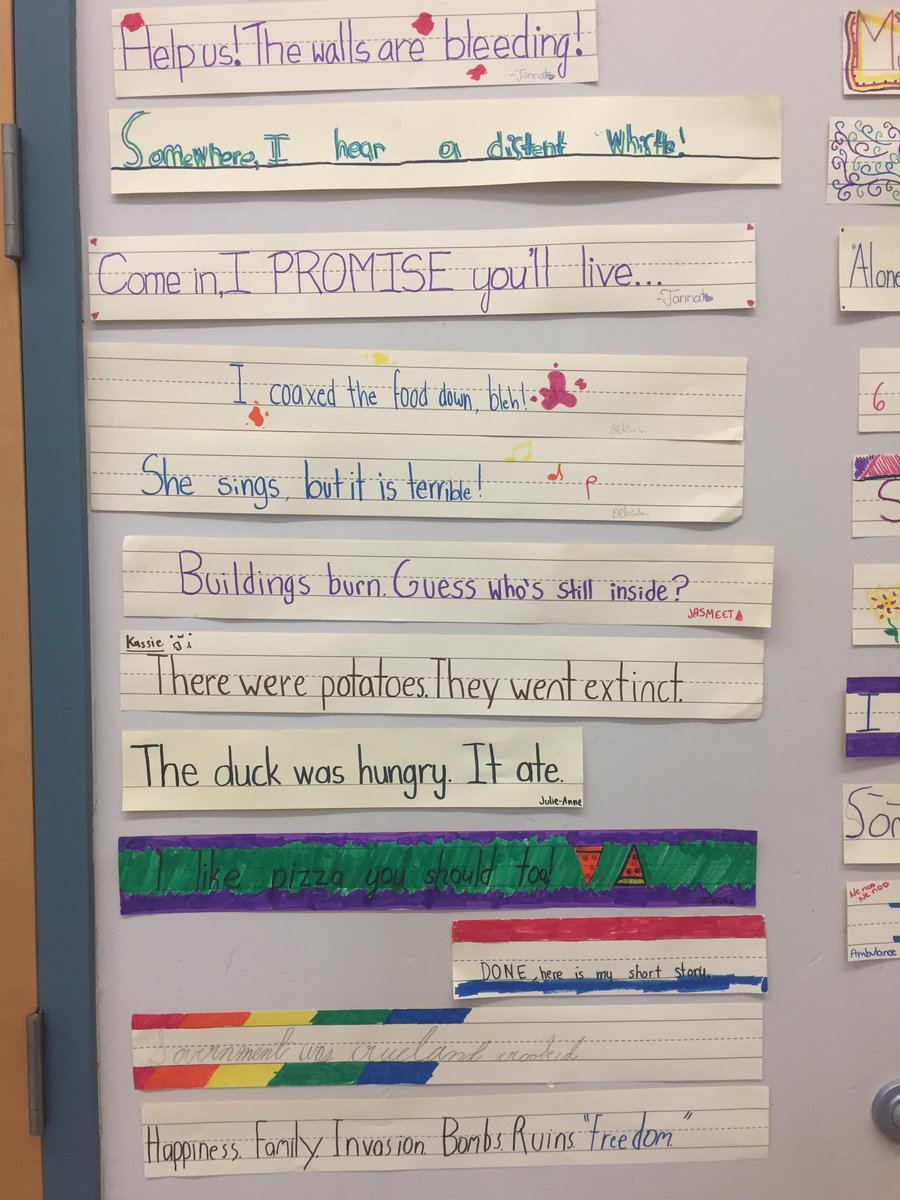 Help us! The walls are bleeding!
-Jannat
Somewhere, I hear a distent whistle!
Come in, I PROMISE you'll live...
-Jannat
I coaxed the food down, bleh!
She sings, but it is terrible!
Buildings burn. Guess who's still inside?
JASMEET
Kassie
There were potatoes. They went extinct.
The duck was hungry. It ate.
Julie-Anne
I like pizza you should too!
DONE, here is my short story.
Government was cruel and crooked
Happiness. Family. Invasion. Bombs. Ruins. "freedom."
"Alone
6
S
I
Ne noo
Ne noo
Ambulance